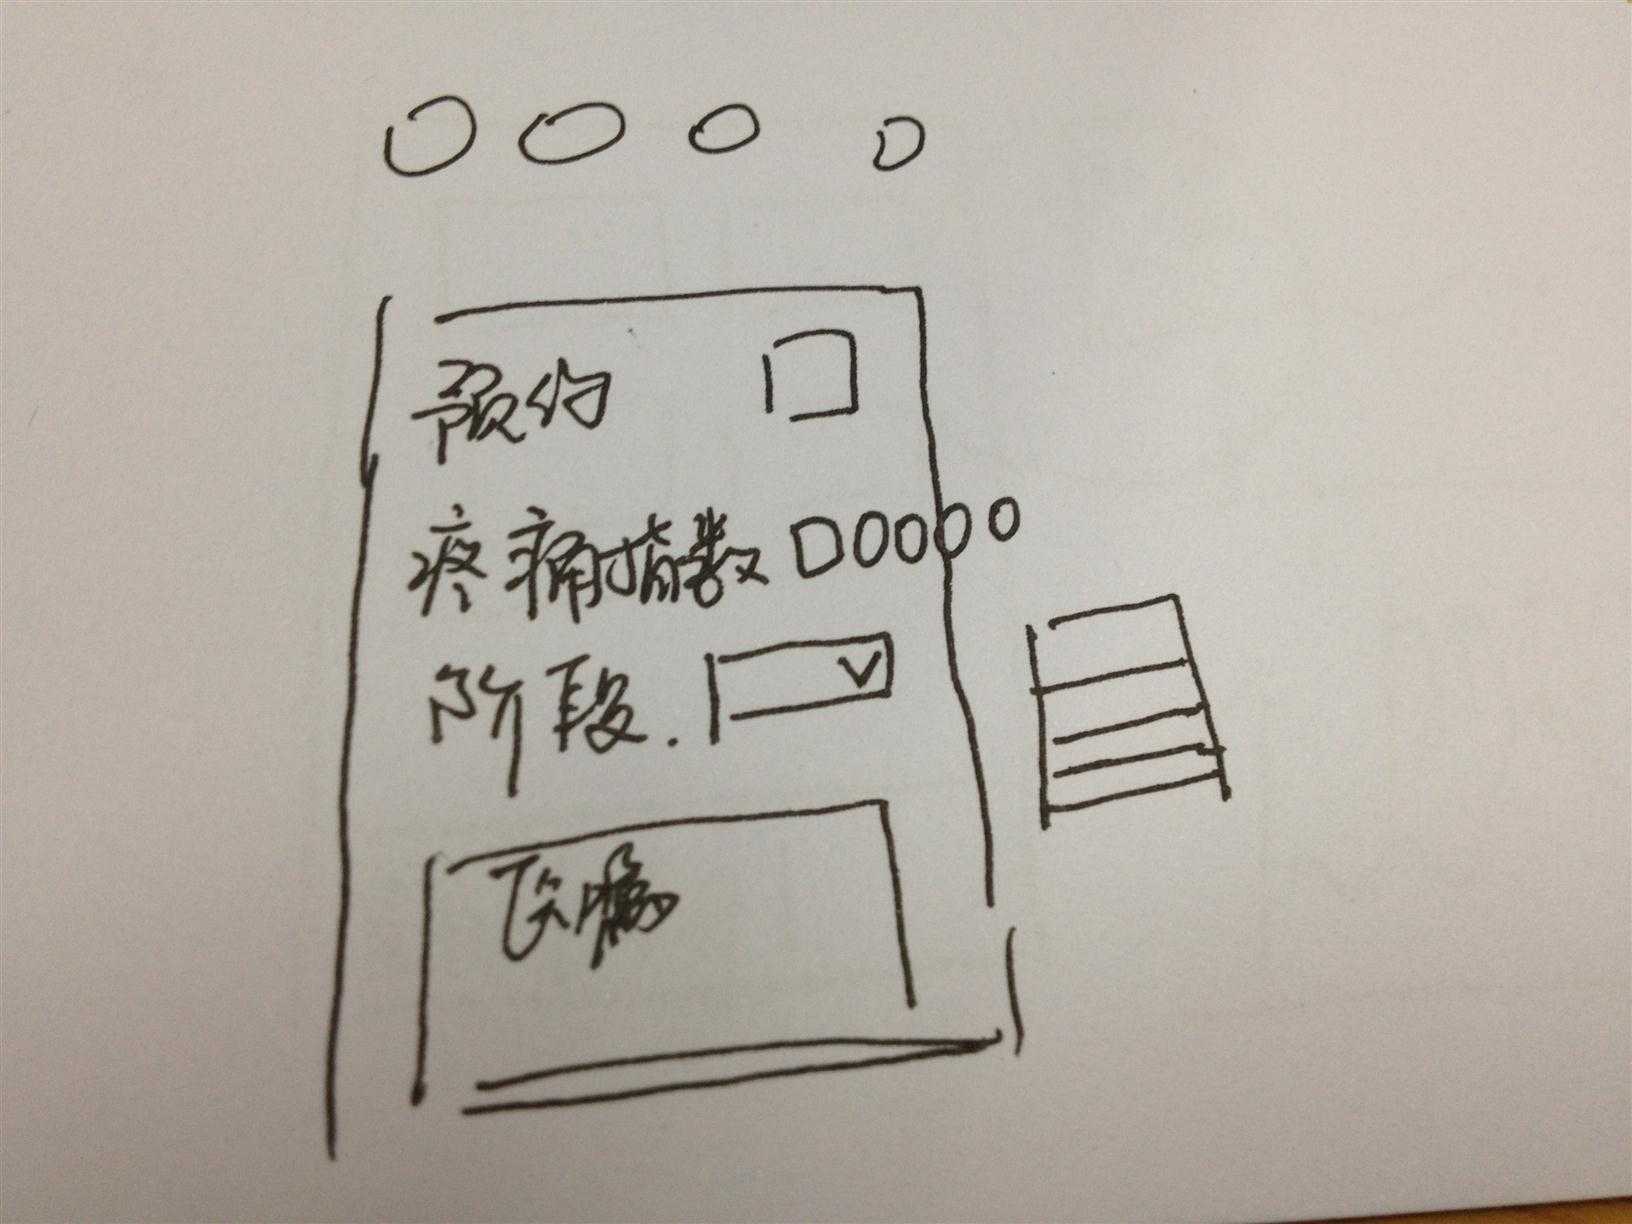 预约
疼痛指数
阶段.